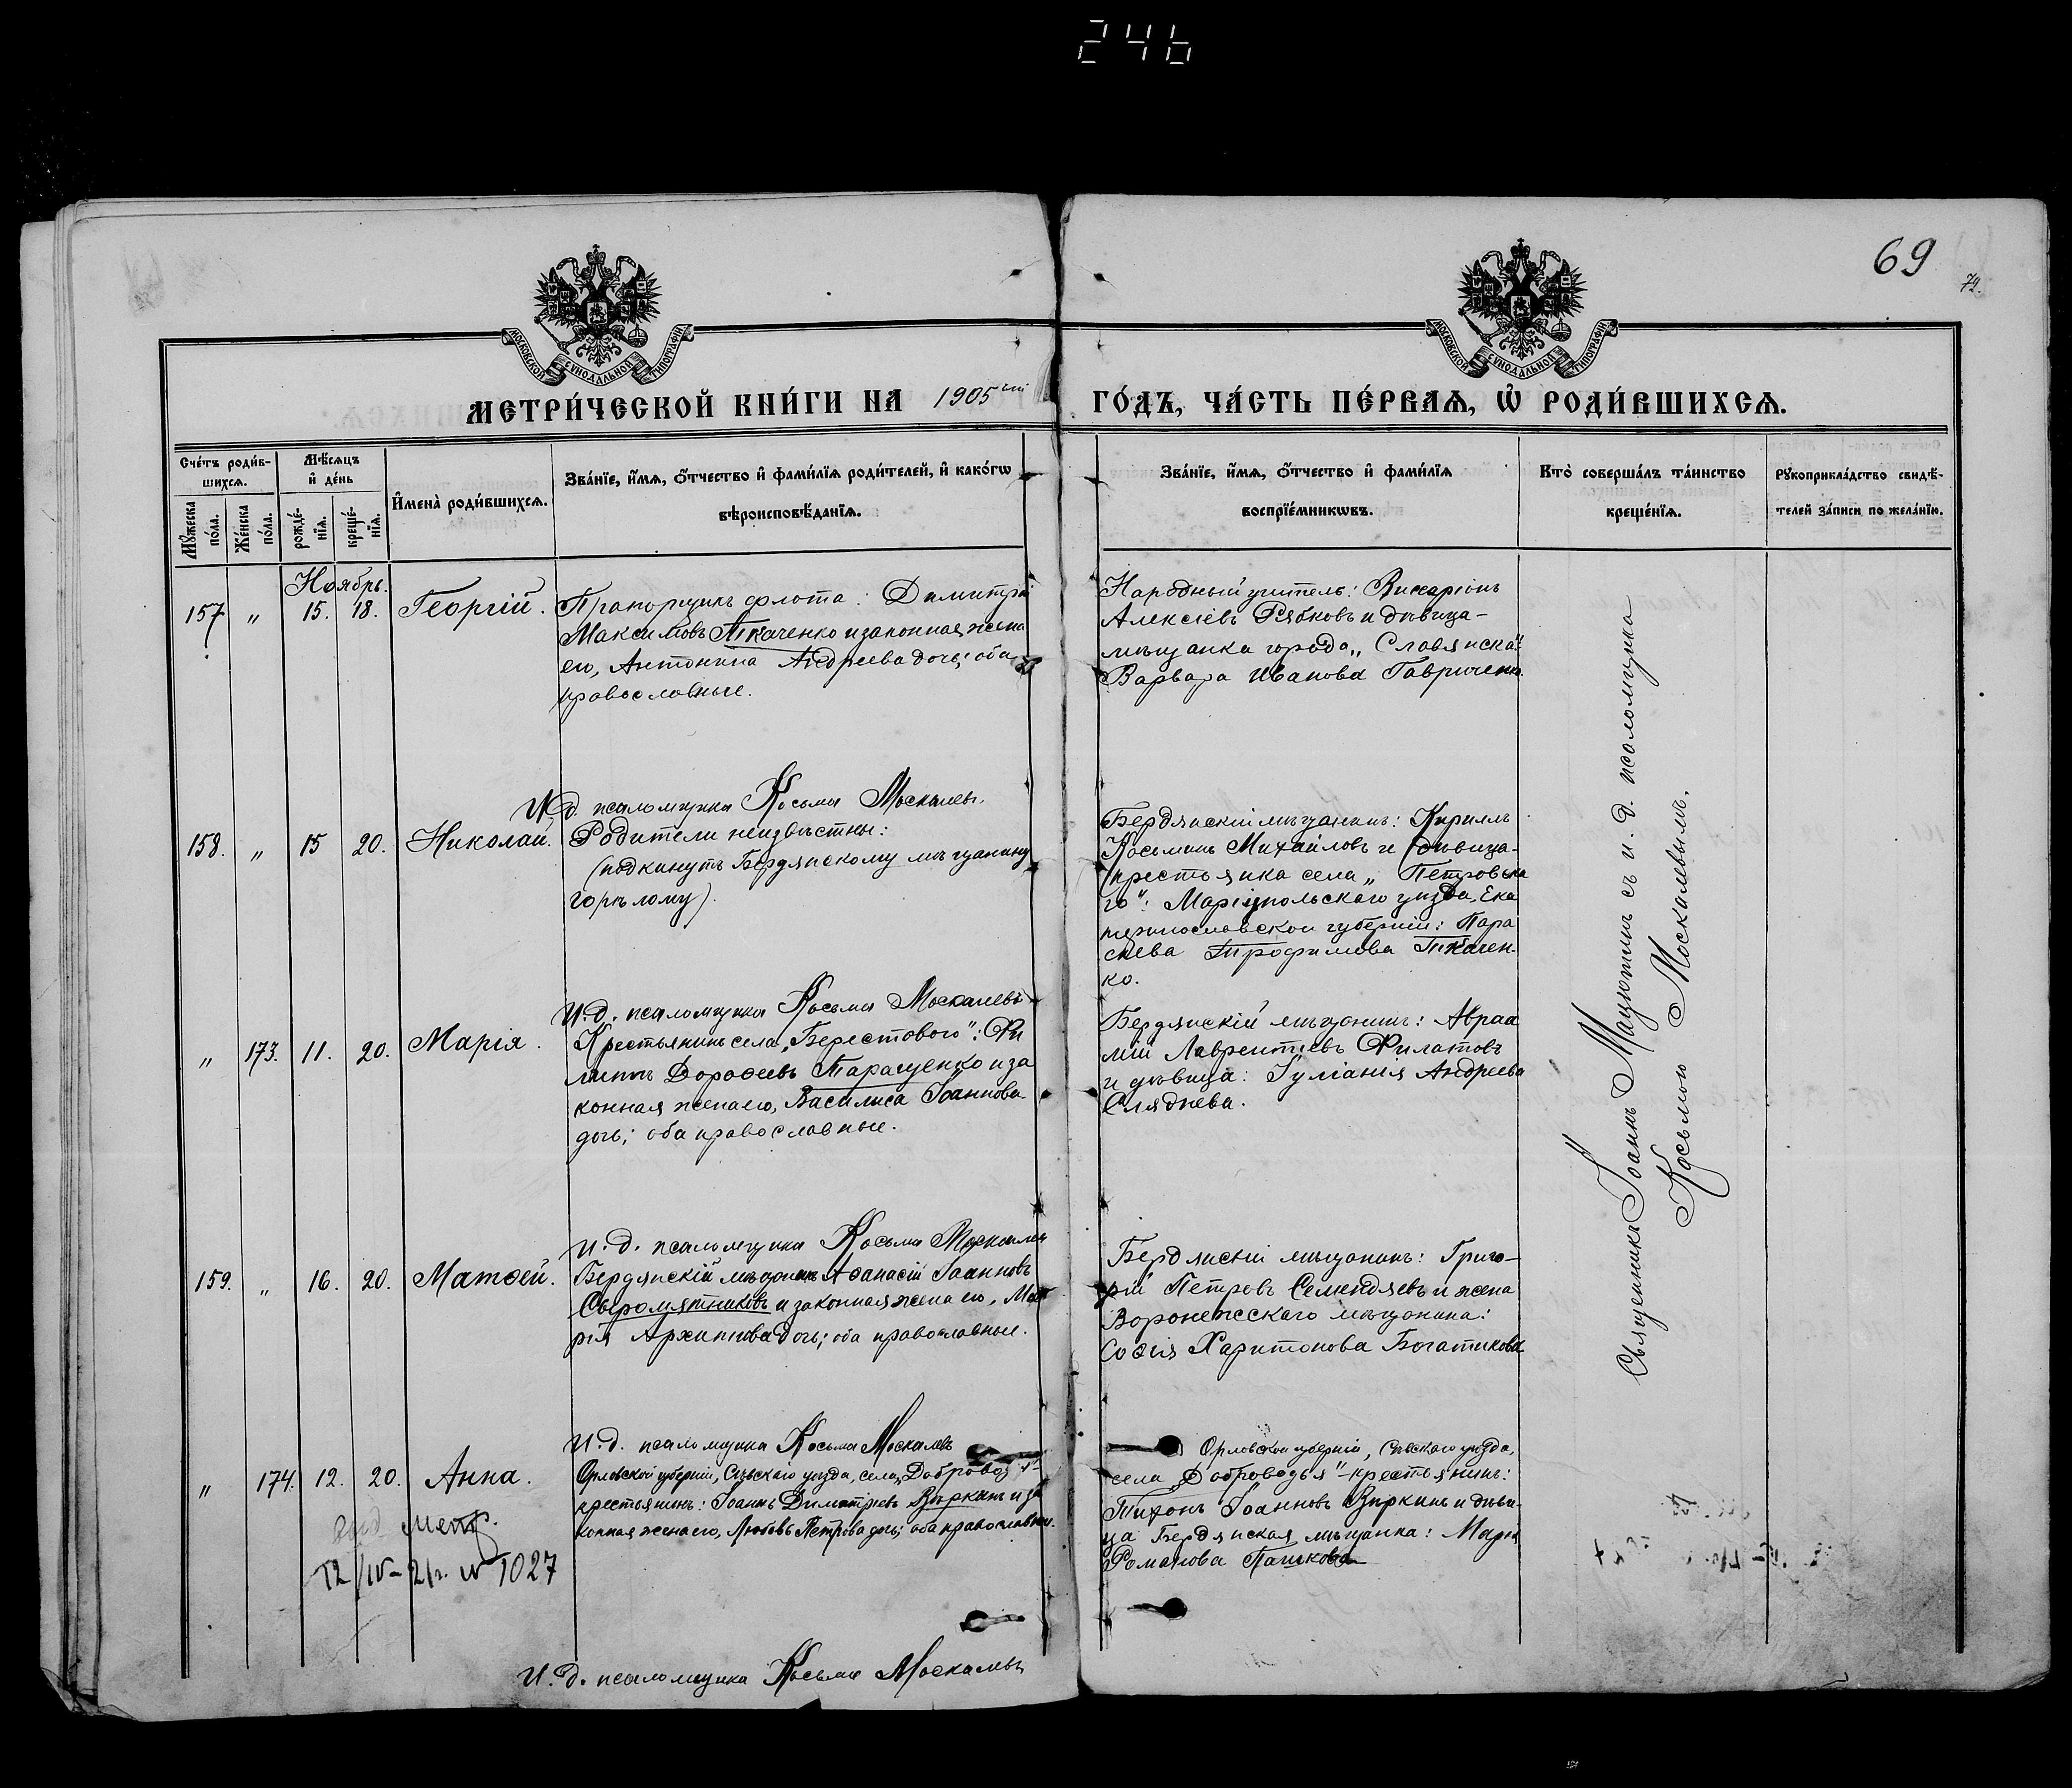 246
69
72.
МОСКОВСКОЙ СѴНОДАЛЬНОЙ ТИПОГРАФІИ
МОСКОВСКОЙ СѴНОДАЛЬНОЙ ТИПОГРАФІИ
МЕТРИ́ЧЕСКОЙ КНИ́ГИ НА 1905 ГО́ДЪ, ЧА́СТЬ ПЕ́РВАЯ, Ѡ҆ РОДИ́ВШИХСЯ.
Сче́тъ роди́в-
шихся.
Мꙋ́жеска по́ла.
Же́нска по́ла.
Мѣ́сяцъ
и҆ де́нь
рожде́-
нїя.
креще́-
нїя.
И҆мена̀ роди́вшихся.
Зва́нїе, и҆́мя, ѻ҆́тчество и҆ фами́лїя роди́телей, и҆ како́гѡ
вѣроисповѣ́данїя.
Зва́нїе, и҆́мя, ѻ҆́тчество и҆ фами́лїя
воспрїе́мникѡвъ.
Кто̀ соверша́лъ та́инство
креще́нїя.
Рꙋкоприкла́дство свидѣ́-
телей за́писи по жела́нїю.
Ноябрь.
157 " 15. 18. Георгій.
Прапорщикъ флота: Димитрій
Максимовъ Ткаченко и законная жена
его, Антонина Андреева дочь; оба
православные.
Народный учитель:
Алексіевъ Рябковъ и дѣвица-
мѣщанка города „Славянска":
Варвара Иванова
И.д. псаломщика Косьма Москалевъ.
158. " 15 20. Николай.
Родители неизвѣстны:
(подкинутъ Бердянскому мѣщанину
Горѣлому).
Бердянскій мѣщанинъ: Кириллъ
Косьминъ Михайловъ и дѣвица-
крестьянка села „Петровска
го": Маріупольскаго уѣзда, Ека
теринославской губерніи: Пара
скева Трофимова Ткачен-
ко.
И.д. псаломщика Косьма Москалевъ
" 173. 11. 20. Марія.
Крестьянинъ села „Берестового": Фи
липпъ Дороѳеевъ Паращенко и за
конная жена его, Василиса Іоаннова
дочь; оба православные.
Бердянскій мѣщанинъ: Авраа
мій Лаврентіевъ Филатовъ
и дѣвица: Іуліанія Андреева
Сляднева.
И.д. псаломщика Косьма Москалевъ
159. " 16. 20. Матѳей.
Бердянскій мѣщанинъ Аѳанасій Іоанновъ
Сыромятниковъ и законная жена его, Ма
рія Архипова дочь; оба православные.
Бердянскій мѣщанинъ: Григо-
рій Петровъ Семендяевъ и жена
Воронежскаго мѣщанина:
Софія Харитонова Богатикова
И.д. псаломщика Косьма Москалевъ
" 174. 12. 20. Анна.
Орловской губерніи, Сѣвскаго уѣзда, села „Доброводья"
крестьянинъ: Іоаннъ Димитріевъ Виркинъ и за
конная жена его, Любовь Петрова дочь; оба православные.
Орловской губерніи, Сѣвскаго уѣзда,
села „Доброводья"-крестьянинъ:
Тихонъ Іоанновъ Виркинъ и дѣви-
ца Бердянская мѣщанка: Марія
Романова Панькова
метр.
12/IV-21г. № 1027
И.д. псаломщика Косьма Москалевъ
Священникъ Іоаннъ съ и. д. псаломщика
Косьмою Москалевымъ.